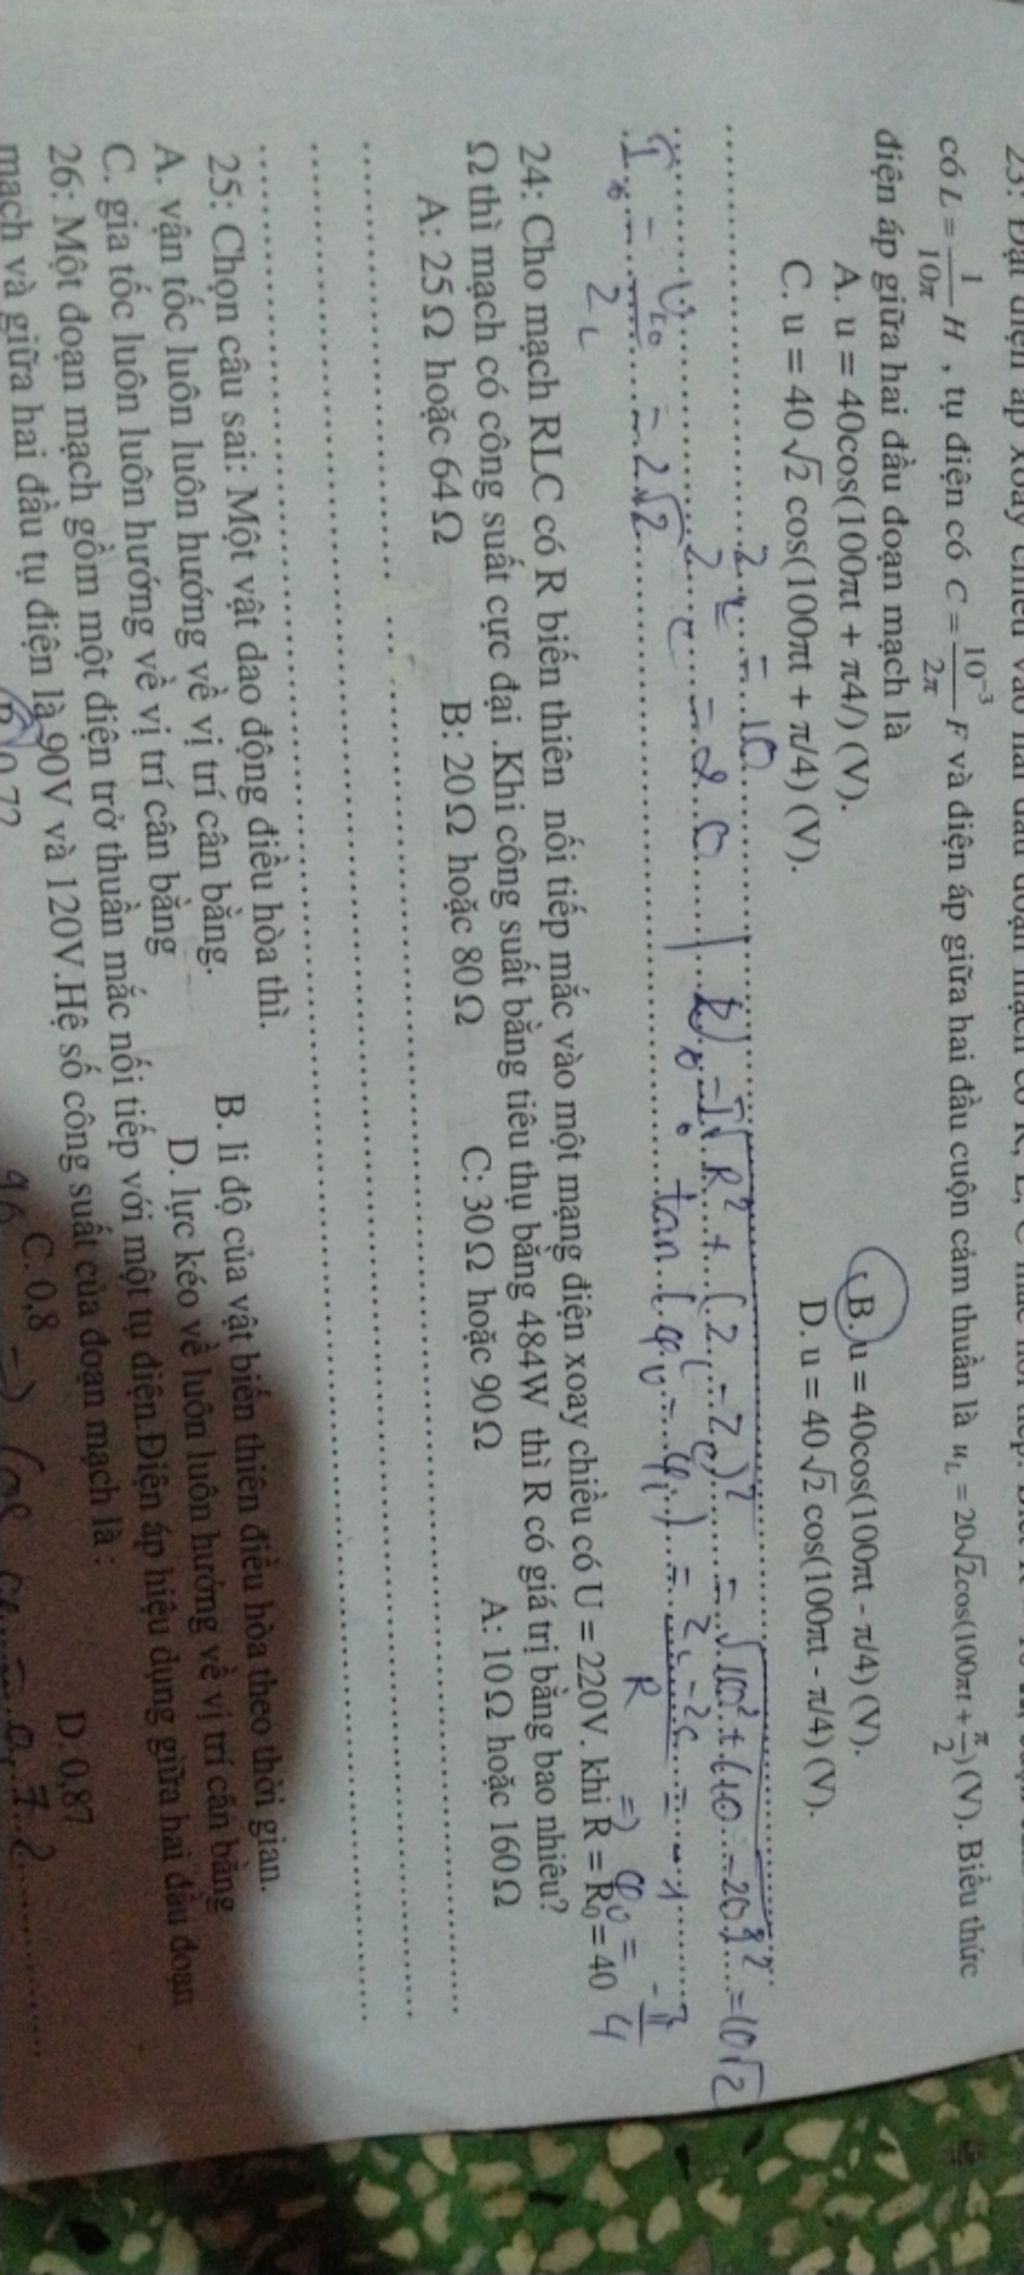 23: Đặt điện áp xoay chiều vào hai đầu đoạn mạch có R, L, C mắc nối tiếp.
có L = 1/10π H , tụ điện có C = 10⁻³/2π F và điện áp giữa hai đầu cuộn cảm thuần là u_L = 20√2cos(100πt + π/2) (V). Biểu thức
điện áp giữa hai đầu đoạn mạch là
A. u = 40cos(100πt + π4/) (V).
B. u = 40cos(100πt - π/4) (V).
C. u = 40√2 cos(100πt + π/4) (V).
D. u = 40√2 cos(100πt - π/4) (V).
Z_L = 10
√R² + (Z_L - Z_C)² = √10² + (10 - 20)² = 10√2
Z_C = 20
I₀ = U_L0/Z_L = 2√2
tan(φ_u - φ_i) = Z_L - Z_C/R = -1
=> φ_u = -π/4
24: Cho mạch RLC có R biến thiên nối tiếp mắc vào một mạng điện xoay chiều có U = 220V. khi R = R₀ = 40
Ω thì mạch có công suất cực đại .Khi công suất bằng tiêu thụ bằng 484W thì R có giá trị bằng bao nhiêu?
A: 25Ω hoặc 64Ω
B: 20Ω hoặc 80Ω
C: 30Ω hoặc 90Ω
A: 10Ω hoặc 160Ω
25: Chọn câu sai: Một vật dao động điều hòa thì.
A. vận tốc luôn luôn hướng về vị trí cân bằng.
B. li độ của vật biến thiên điều hòa theo thời gian.
C. gia tốc luôn luôn hướng về vị trí cân bằng
D. lực kéo về luôn luôn hướng về vị trí cân bằng
26: Một đoạn mạch gồm một điện trở thuần mắc nối tiếp với một tụ điện.Điện áp hiệu dụng giữa hai đầu đoạn
mạch và giữa hai đầu tụ điện là 90V và 120V.Hệ số công suất của đoạn mạch là :
0,72
C. 0,8
D 0,87